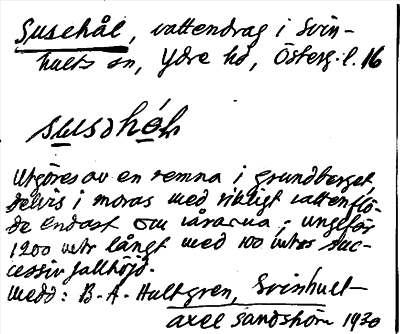 Susehål, vattendrag i Svin-
hults sn, Ydre hd, Österg. l. 16
Utgöres av en remna i grundberget,
delvis i moras med rikligt vattenflö-
de endast om vårarna; ungefär
1200 mtr långt med 100 mtrs suc-
cessiv fallhöjd.
Medd: B. A. Hultgren, Svinhult
Axel Sandström 1930